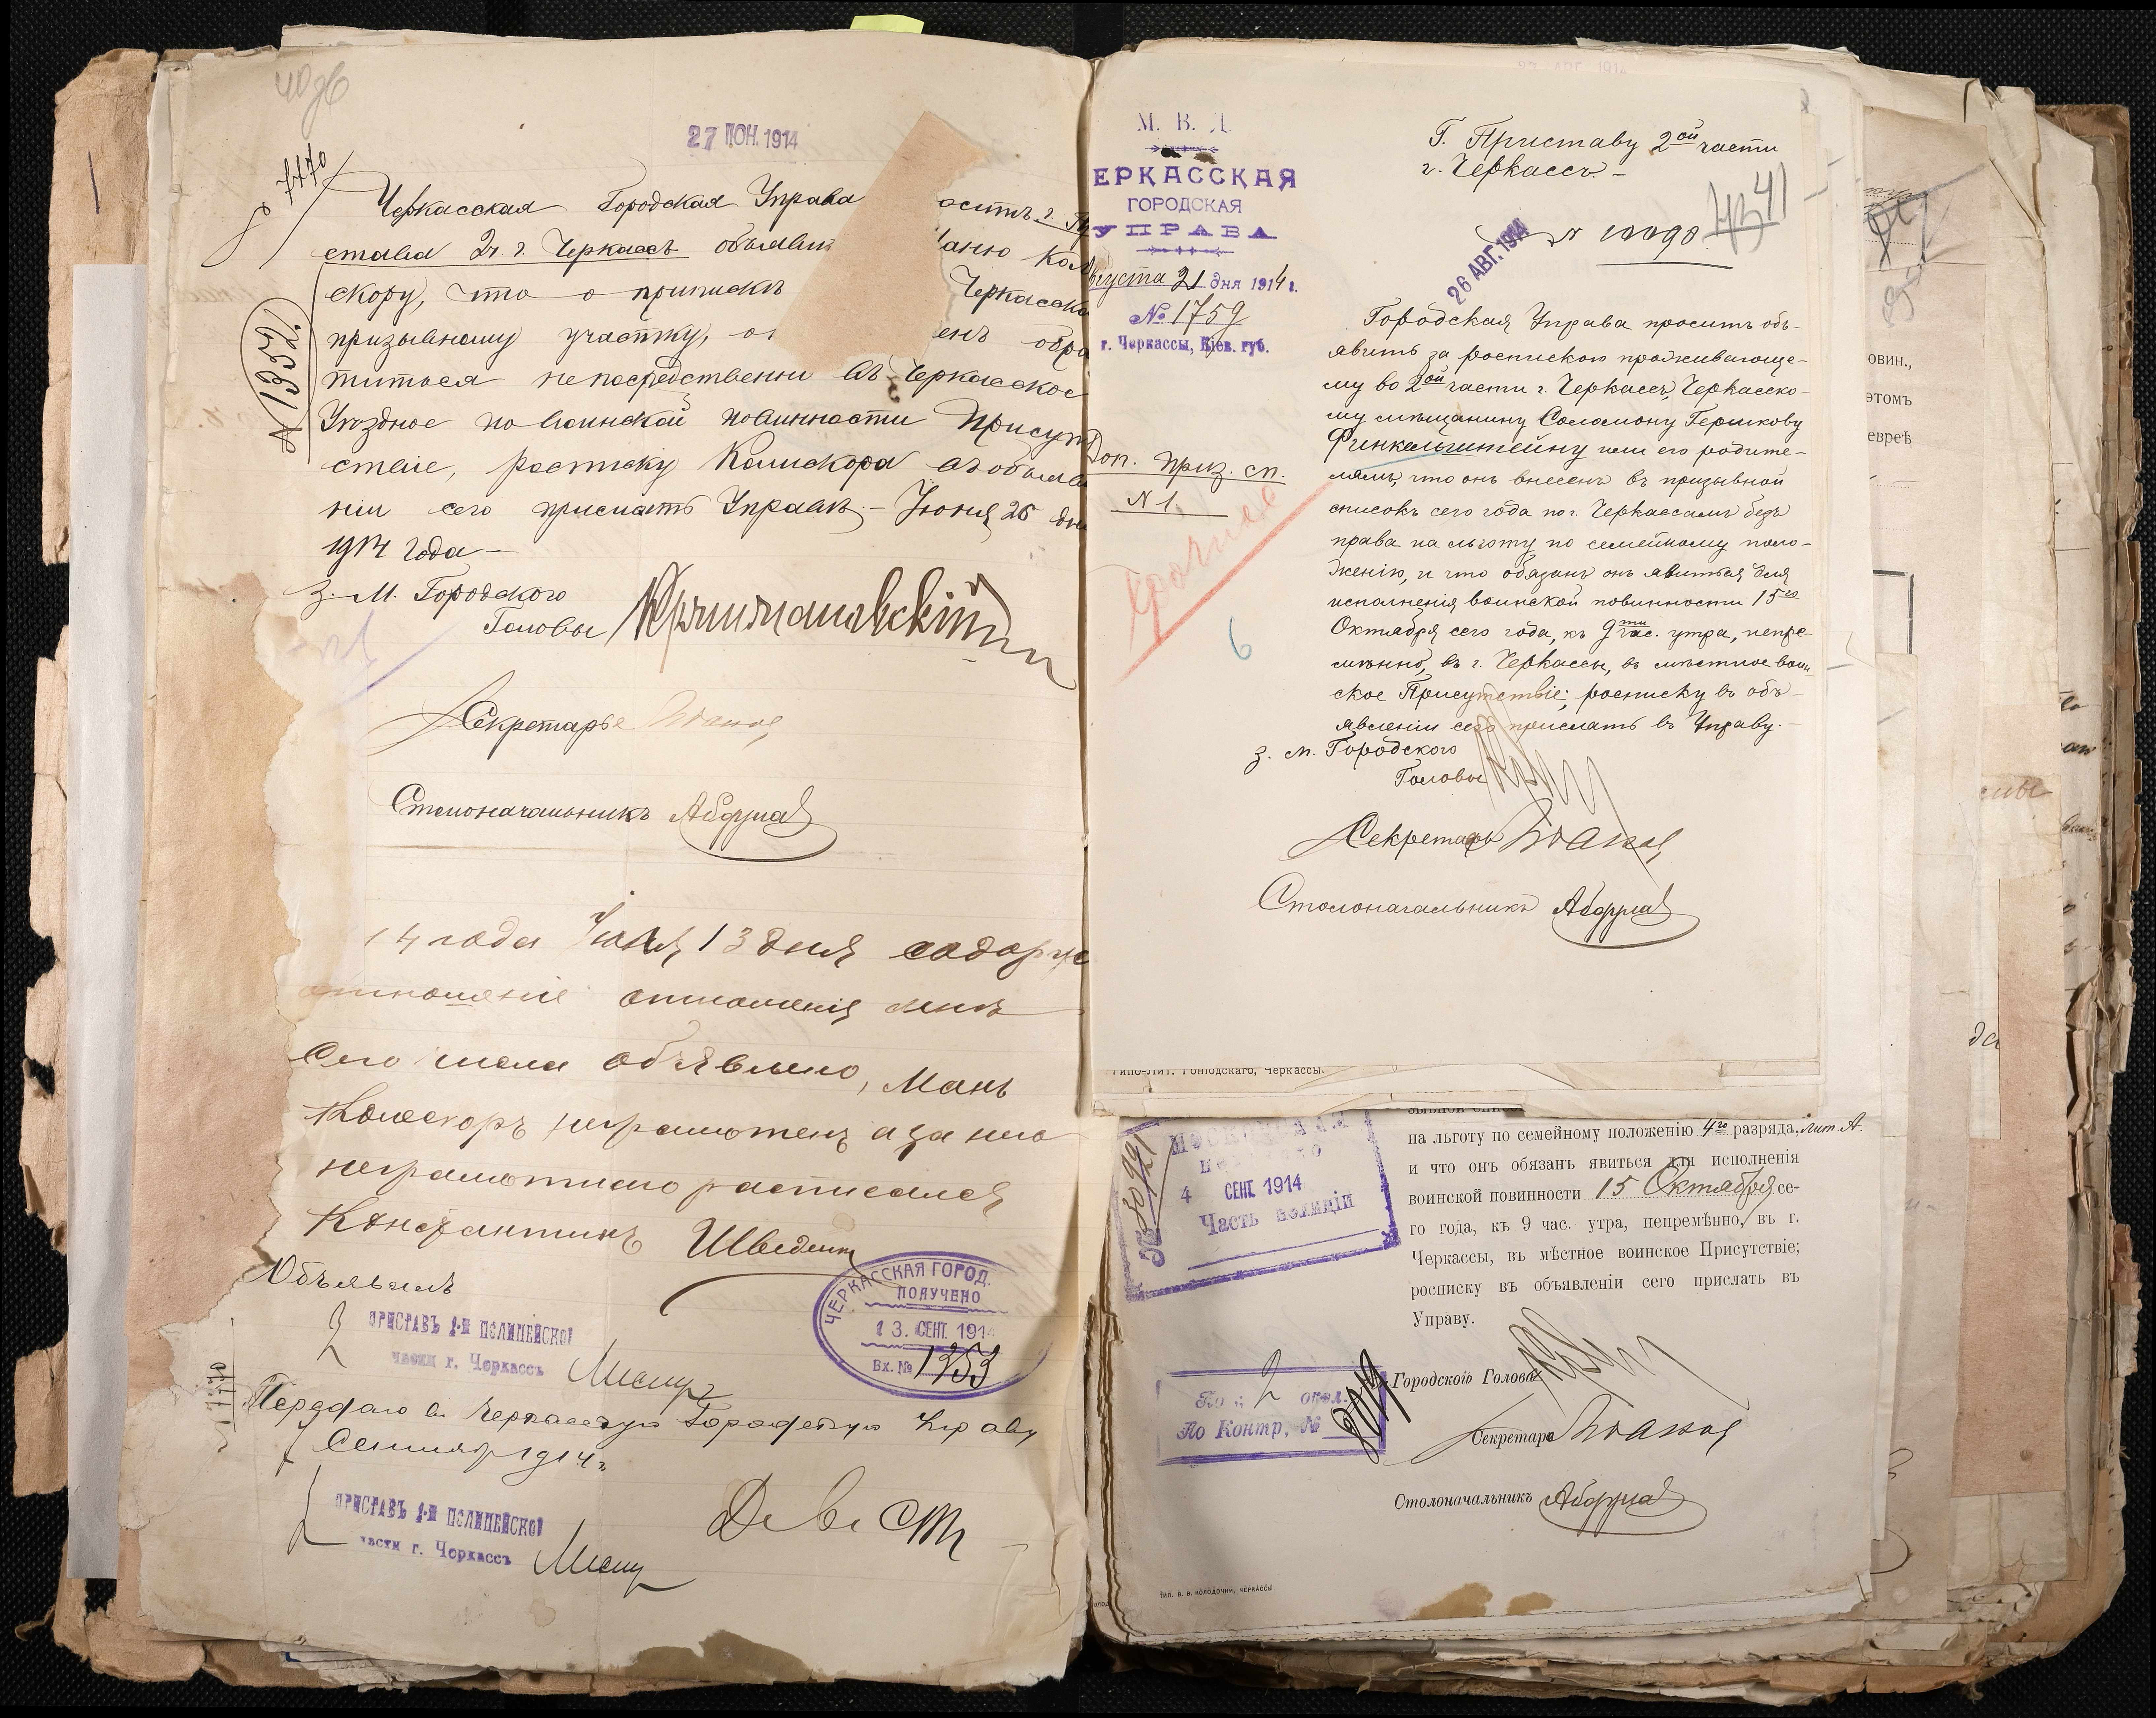 40об
27 ІЮН. 1914
7170
Черкасская Городская Управа
става 2 ч. г. Черкассъ объявить
скору, что о припискѣ Черкасско
призывному участку, о енъ обра
титься непосредственно въ Черкасское
Уѣздное по воинской повинности Присут
ствіе, расписку Колискора въ объявле
ніи сего прислать Управѣ.- Іюня 26 дня
1914 года -
№ 1352
З. М. Городского
Головы
Секретарь
Столоначальникъ
14 года Іюля 13 дня содерж
отношеніе отношенія мнѣ
сего числа объявлено, Мань
Колескоръ неграмотенъ а за него
неграмотнаго расписался
Константинъ Шведенк
Объявилъ
ПРИСТАВЪ 1-Й ПОЛИЦЕЙСКОЙ
части г. Черкассъ
ЧЕРКАССКАЯ ГОРОД.
ПОЛУЧЕНО
13. СЕНТ. 191
Вх. № 1353
Передаю въ Черкасскую Городскую Управу
Сентябр 1914 г.
ПРИСТАВЪ 1-Й ПОЛИЦЕЙСКОЙ
части г. Черкассъ
М. В. Д.
ЕРКАССКАЯ
ГОРОДСКАЯ
УПРАВА
вгуста 21 дня 1914 г.
№ 1759
г. Черкассы, Кіев. губ.
Доп. приз. сп.
N 1.
срочное
6
Г. Приставу 2ой части
г. Черкассъ -
41
26 АВГ. 1914
N 10090
Городская Управа проситъ объ-
явить за роспискою проживающе-
му во 2ой части г. Черкассъ, Черкасско-
му мѣщанину Соломону Гершкову
Финкельштейну или его родите-
лямъ, что онъ внесенъ въ призывной
списокъ сего года по г. Черкассамъ безъ
права на льготу по семейному поло-
женію, и что обязанъ онъ явиться для
исполненія воинской повинности 15го
Октября сего года, къ 9ти час. утра, непре-
мѣнно, въ г. Черкассы, въ мѣстное воин
ское Присутствіе; росписку въ объ-
явленіи сего прислать въ Управу. -
з. м. Городского
Головы
Секретарь
Столоначальникъ
Типо-Лит. Гонюдскаго, Черкассы.
4 СЕНТ. 1914
Часть полиціи
на льготу по семейному положенію 4го разряда, лит. А.
и что онъ обязанъ явиться для исполненія
воинской повинности 15 Октября се-
го года, къ 9 час. утра, непремѣнно, въ г.
Черкассы, въ мѣстное воинское Присутствіе;
росписку въ объявленіи сего прислать въ
Управу.
По 2 окол.
По Контр, №
Городского Головы
Секретарь
Столоначальникъ
Тип. В. В. Колодочки, Черкассы
овин.,
этомъ
еврѣ